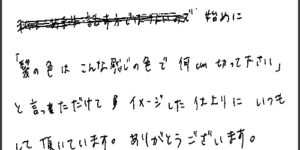 始めに
「髪の色は こんな感じの色で 何cm 切って下さい」
と言っただけで イメージした仕上りに いつも
して頂いています。ありがとうございます。